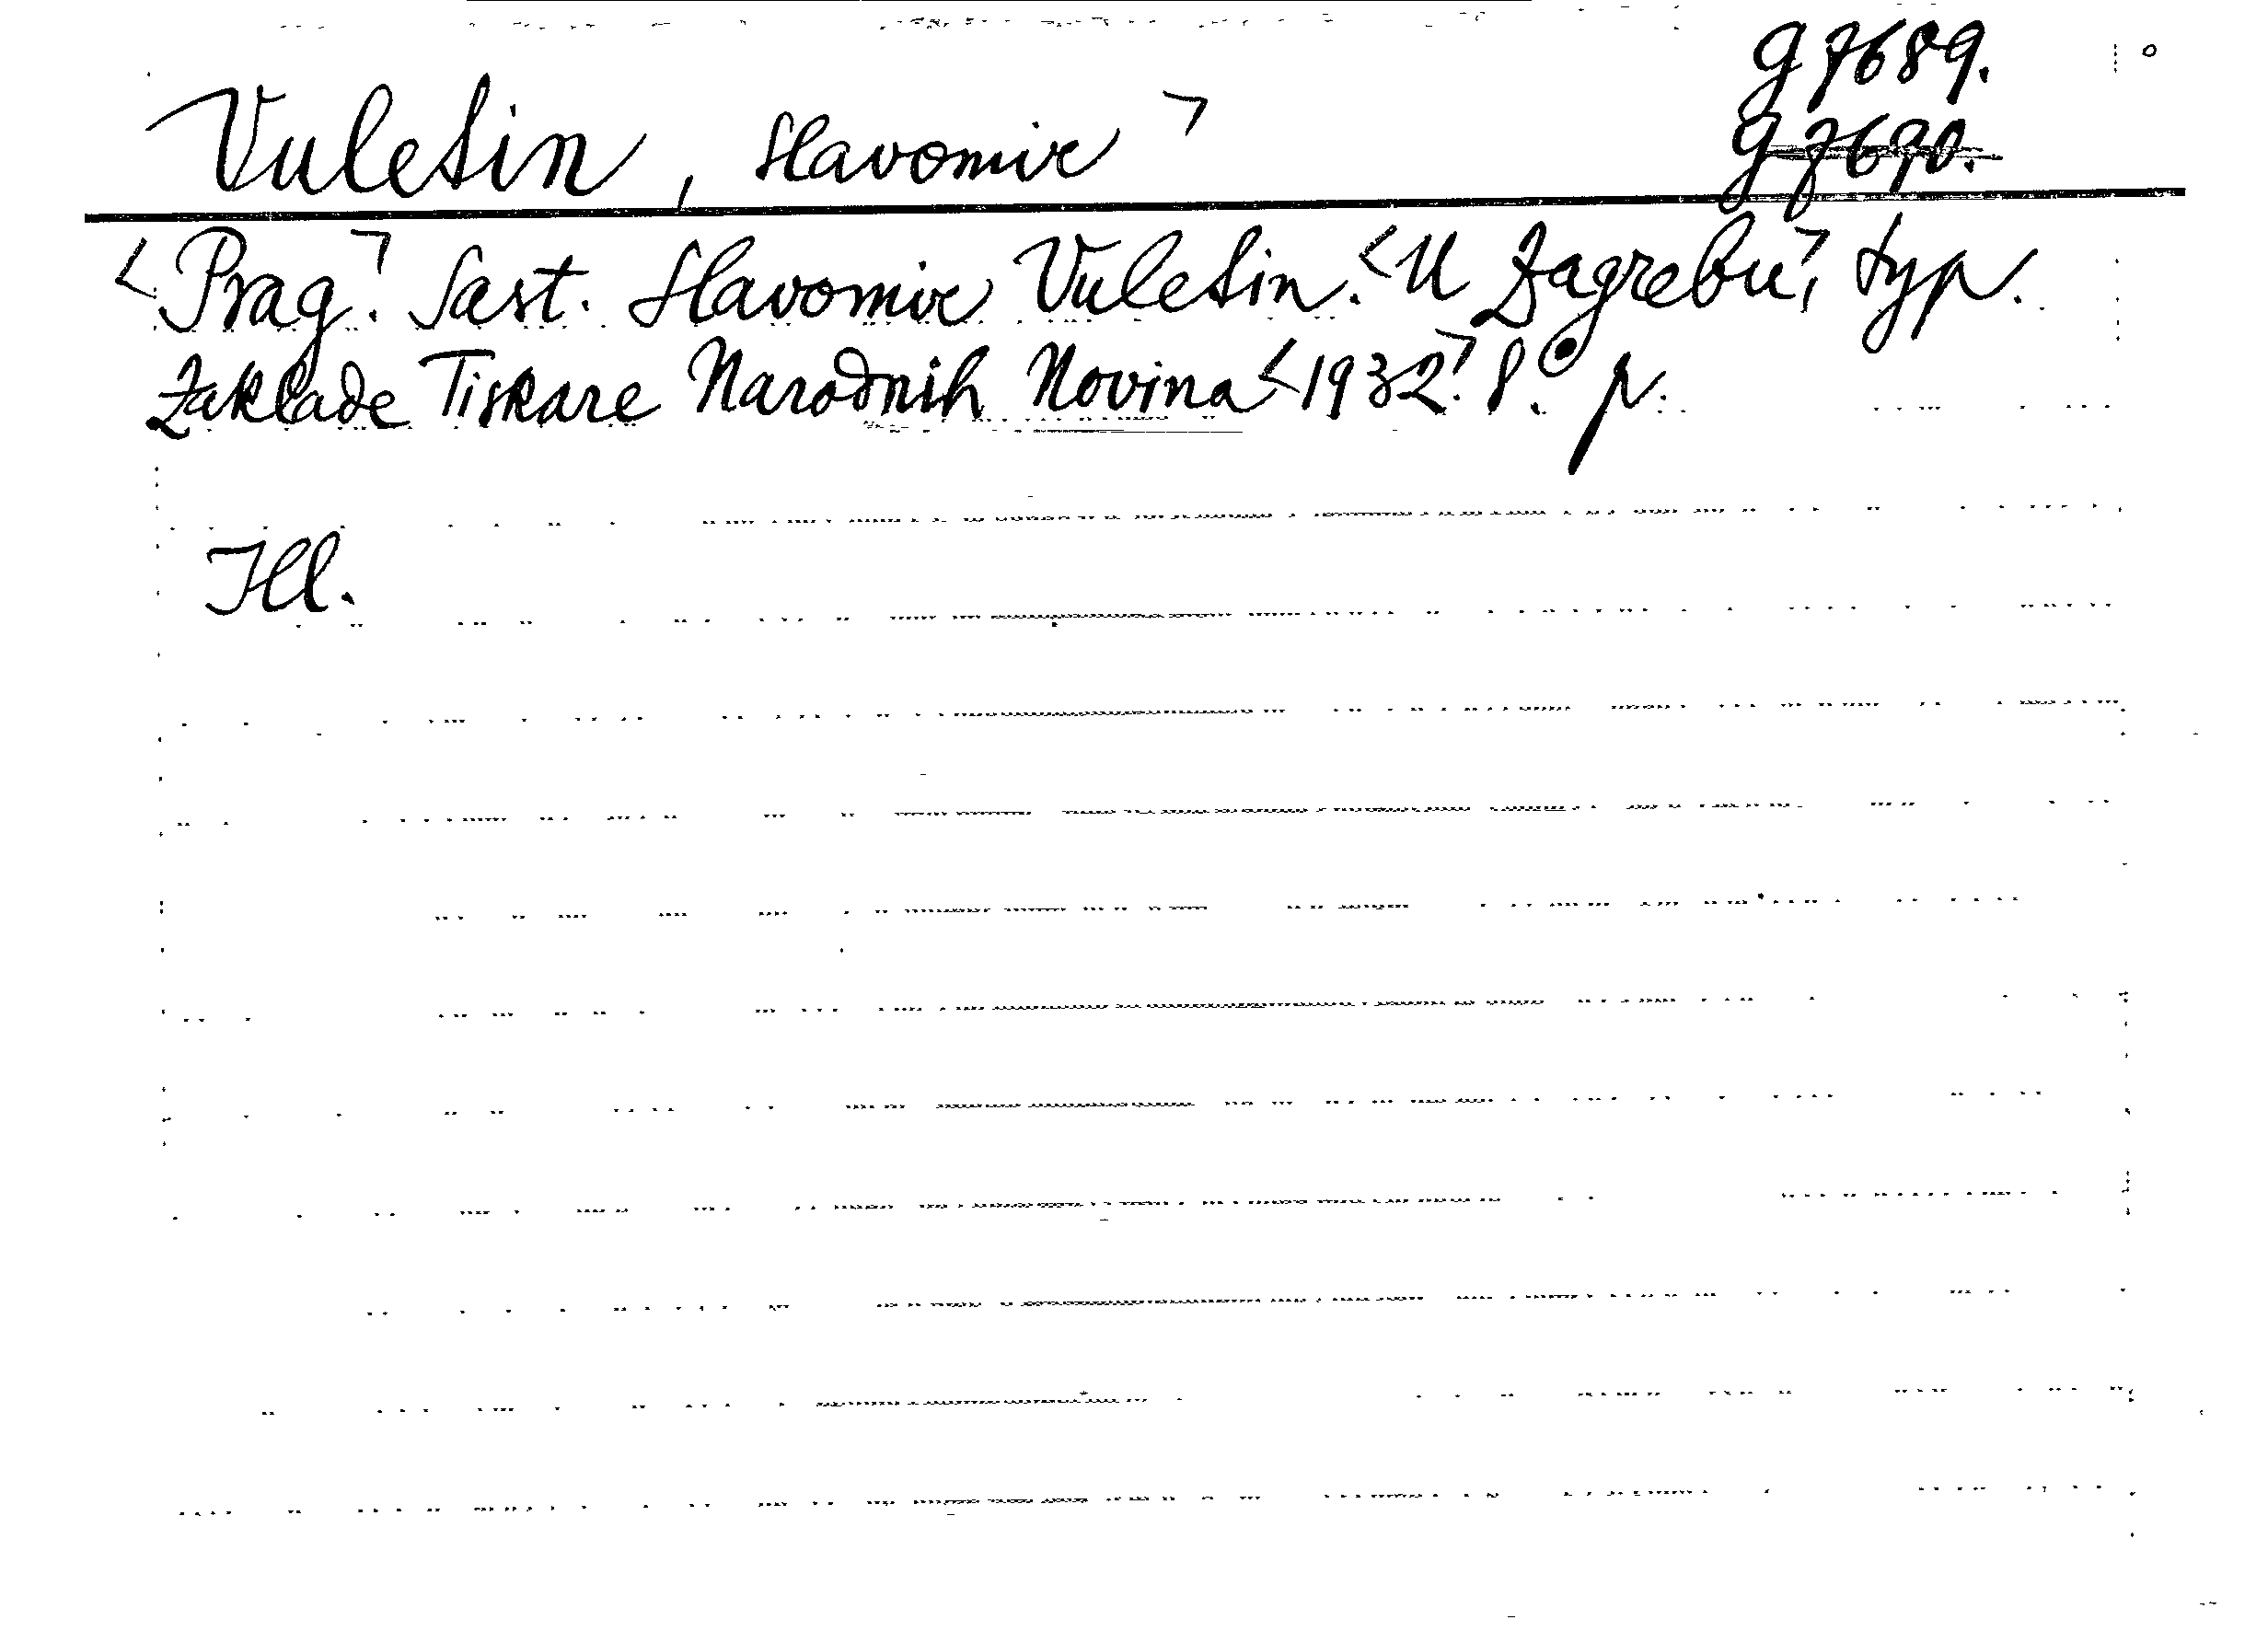 g 7689.
Vuletin, Slavomir >
g 7690.
<Prag>. Sast. Slavomir Vuletin. <U Zagrebu>, typ.
Zaklade Tiskare Narodnih Novina <1932>. 8.° p.
Ill.